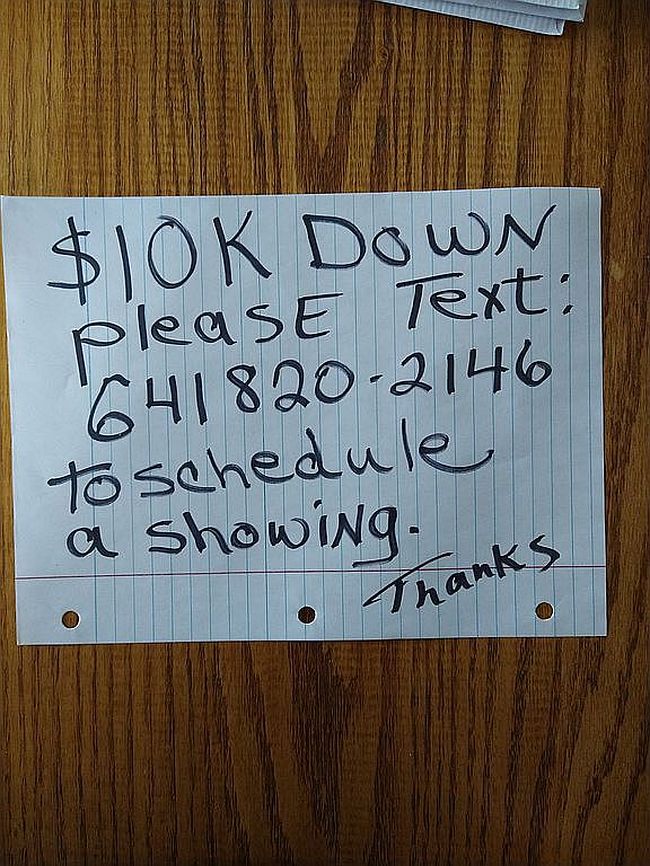 $10K DOWN
pleasE Text:
641 820-2146
to schedule
a showiNg.
ThankS